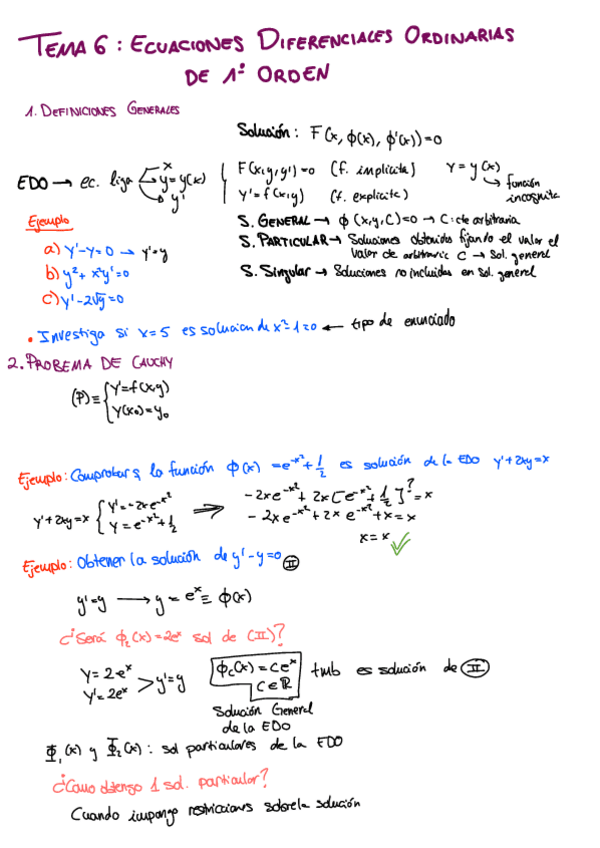 TEMA 6 : ECUACIONES DIFERENCIALES ORDINARIAS
DE 1º ORDEN
1. DEFINICIONES GENERALES
Solución : F(x, ϕ(x), ϕ'(x)) = 0
EDO → ec. liga x y=y(x) y' { F(x,y,y')=0 (f. implicita) y = y(x) → función incognita
y' = f(x,y) (f. explicita)
Ejemplo
S. GENERAL → ϕ(x,y,C)=0 → C: cte arbitraria
a) y'-y=0 → y'=y
S. PARTICULAR → Soluciones obtenida fijando el valor el
valor de arbitraria C → Sol. general
b) y²+ x²y'=0
S. Singular → Soluciones no incluidas en sol. general
c) y'-2√y=0
• Investiga si x=5 es solucion de x²-1=0 ← tipo de enunciado
2. PROBEMA DE CAUCHY
(P) ≡ { y'=f(x,y)
y(x₀)=y₀
Ejemplo: Comprobar q la función ϕ(x) = e^-x² + 1/2 es solución de la EDO y'+2xy=x
y'+2xy=x { y'=-2xe^-x² ⇒ -2xe^-x² + 2x[e^-x² + 1/2] =? x
y = e^-x² + 1/2 -2xe^-x² + 2x e^-x² + x = x
x = x ✓
Ejemplo: Obtener la solución de y'-y=0 (II)
y'=y → y = e^x ≡ ϕ(x)
¿Será ϕ₂(x)=2e^x sol de (II)?
y = 2·e^x
y' = 2e^x > y'=y ϕc(x) = ce^x tmb es solución de (II)
c∈ℝ
Solución General
de la EDO
Φ₁(x) y Φ₂(x) : sol particulares de la EDO
¿Como obtengo 1 sol. particular?
Cuando impongo restricciones sobre la solución